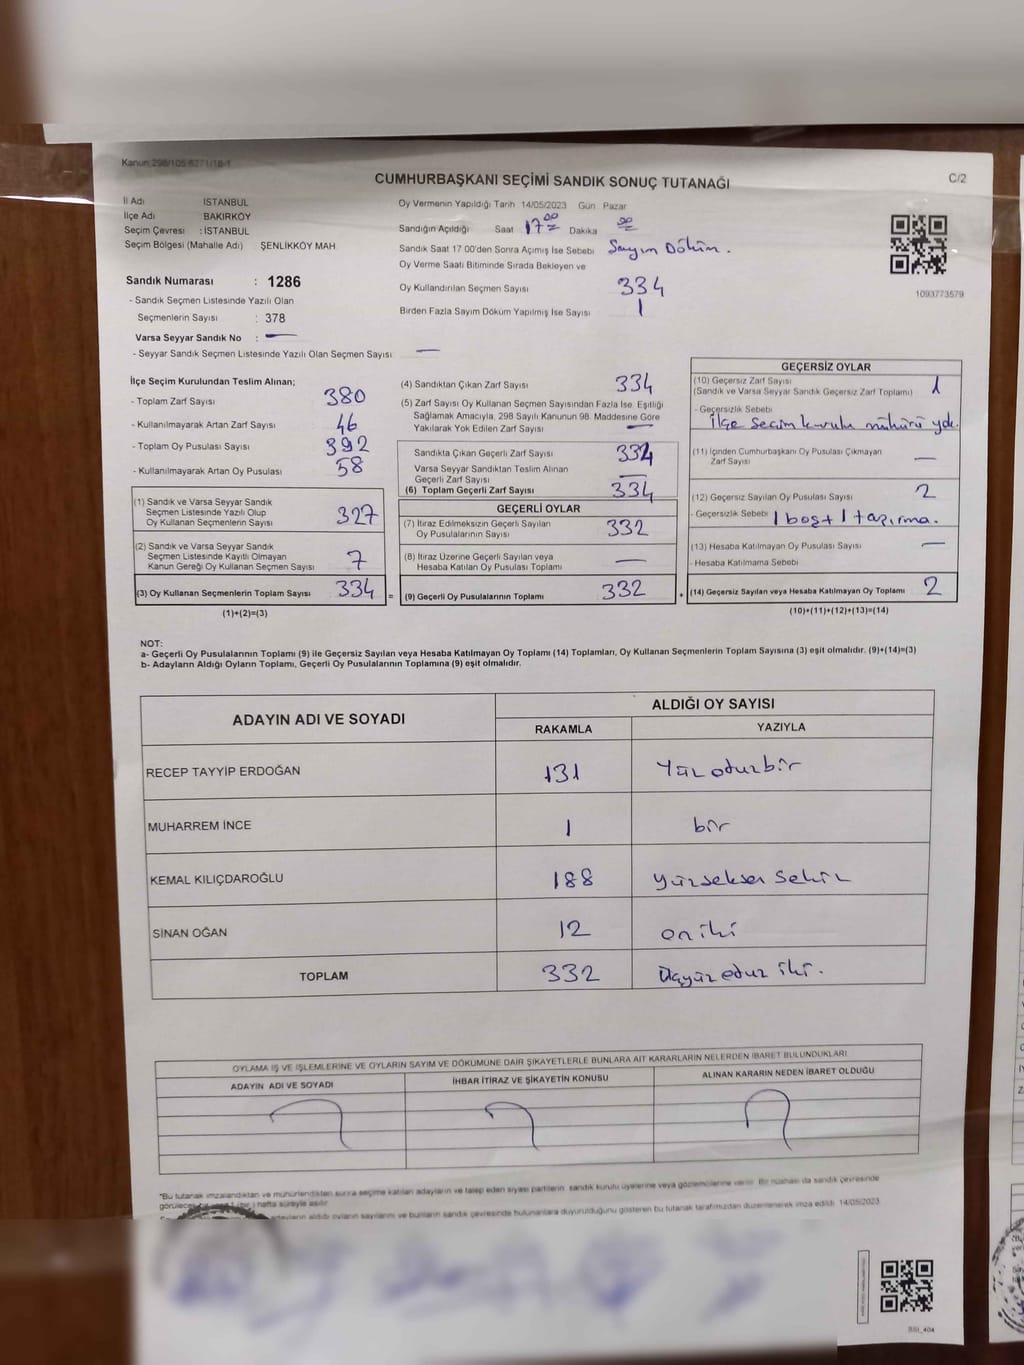 Kanun:298/105 6271/18-1
CUMHURBAŞKANI SEÇİMİ SANDIK SONUÇ TUTANAĞI
C/2
İl Adı İSTANBUL
İlçe Adı BAKIRKÖY
Seçim Çevresi : İSTANBUL
Seçim Bölgesi (Mahalle Adı) ŞENLİKKÖY MAH
Sandık Numarası : 1286
- Sandık Seçmen Listesinde Yazılı Olan
Seçmenlerin Sayısı : 378
Varsa Seyyar Sandık No : —
- Seyyar Sandık Seçmen Listesinde Yazılı Olan Seçmen Sayısı —
Oy Vermenin Yapıldığı Tarih 14/05/2023 Gün Pazar
Sandığın Açıldığı Saat 17 00 Dakika 00
Sandık Saat 17 00'den Sonra Açımış İse Sebebi Sayım Döküm.
Oy Verme Saati Bitiminde Sırada Bekleyen ve
Oy Kullandırılan Seçmen Sayısı 334
Birden Fazla Sayım Döküm Yapılmış İse Sayısı 1
1093773579
İlçe Seçim Kurulundan Teslim Alınan;
- Toplam Zarf Sayısı 380
- Kullanılmayarak Artan Zarf Sayısı 46
- Toplam Oy Pusulası Sayısı 392
- Kullanılmayarak Artan Oy Pusulası 58
(1) Sandık ve Varsa Seyyar Sandık
Seçmen Listesinde Yazılı Olup
Oy Kullanan Seçmenlerin Sayısı 327
(2) Sandık ve Varsa Seyyar Sandık
Seçmen Listesinde Kayıtlı Olmayan
Kanun Gereği Oy Kullanan Seçmen Sayısı 7
(3) Oy Kullanan Seçmenlerin Toplam Sayısı 334 =
(1)+(2)=(3)
(4) Sandıktan Çıkan Zarf Sayısı 334
(5) Zarf Sayısı Oy Kullanan Seçmen Sayısından Fazla İse Eşitliği
Sağlamak Amacıyla, 298 Sayılı Kanunun 98. Maddesine Göre
Yakılarak Yok Edilen Zarf Sayısı —
Sandıkta Çıkan Geçerli Zarf Sayısı 334
Varsa Seyyar Sandıktan Teslim Alınan
Geçerli Zarf Sayısı —
(6) Toplam Geçerli Zarf Sayısı 334
GEÇERLİ OYLAR
(7) İtiraz Edilmeksizin Geçerli Sayılan
Oy Pusulalarının Sayısı 332
(8) İtiraz Üzerine Geçerli Sayılan veya
Hesaba Katılan Oy Pusulası Toplamı —
(9) Geçerli Oy Pusulalarının Toplamı 332 +
GEÇERSİZ OYLAR
(10) Geçersiz Zarf Sayısı 1
(Sandık ve Varsa Seyyar Sandık Geçersiz Zarf Toplamı)
- Geçersizlik Sebebi
İlçe Seçim kurulu mühürü yok.
(11) İçinden Cumhurbaşkanı Oy Pusulası Çıkmayan
Zarf Sayısı —
(12) Geçersiz Sayılan Oy Pusulası Sayısı 2
- Geçersizlik Sebebi 1 boş + 1 taşırma.
(13) Hesaba Katılmayan Oy Pusulası Sayısı —
- Hesaba Katılmama Sebebi
(14) Geçersiz Sayılan veya Hesaba Katılmayan Oy Toplamı 2
(10)+(11)+(12)+(13)=(14)
NOT:
a- Geçerli Oy Pusulalarının Toplamı (9) ile Geçersiz Sayılan veya Hesaba Katılmayan Oy Toplamı (14) Toplamları, Oy Kullanan Seçmenlerin Toplam Sayısına (3) eşit olmalıdır. (9)+(14)=(3)
b- Adayların Aldığı Oyların Toplamı, Geçerli Oy Pusulalarının Toplamına (9) eşit olmalıdır.
ADAYIN ADI VE SOYADI
ALDIĞI OY SAYISI
RAKAMLA YAZIYLA
RECEP TAYYİP ERDOĞAN 131 Yüz otuz bir
MUHARREM İNCE 1 bir
KEMAL KILIÇDAROĞLU 188 yüzseksen sekiz
SİNAN OĞAN 12 oniki
TOPLAM 332 Üçyüz otuz iki.
OYLAMA İŞ VE İŞLEMLERİNE VE OYLARIN SAYIM VE DÖKÜMÜNE DAİR ŞİKAYETLERLE BUNLARA AİT KARARLARIN NELERDEN İBARET BULUNDUKLARI
ADAYIN ADI VE SOYADI İHBAR İTİRAZ VE ŞİKAYETİN KONUSU ALINAN KARARIN NEDEN İBARET OLDUĞU
*Bu tutanak imzalandıktan ve mühürlendikten sonra seçime katılan adayların ve talep eden siyasi partilerin sandık kurulu üyelerine veya gözlemcilerine verilir. Bir nüshası da sandık çevresinde
hafta süreyle asılır
adayların aldığı oyların sayılarını ve bunların sandık çevresinde bulunanlara duyurulduğunu gösteren bu tutanak tarafımızdan düzenlenerek imza edildi 14/05/2023